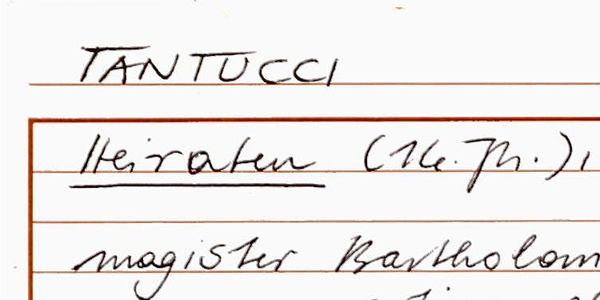 TANTUCCI
Heiraten (16. Jh.),
magister Bartholom